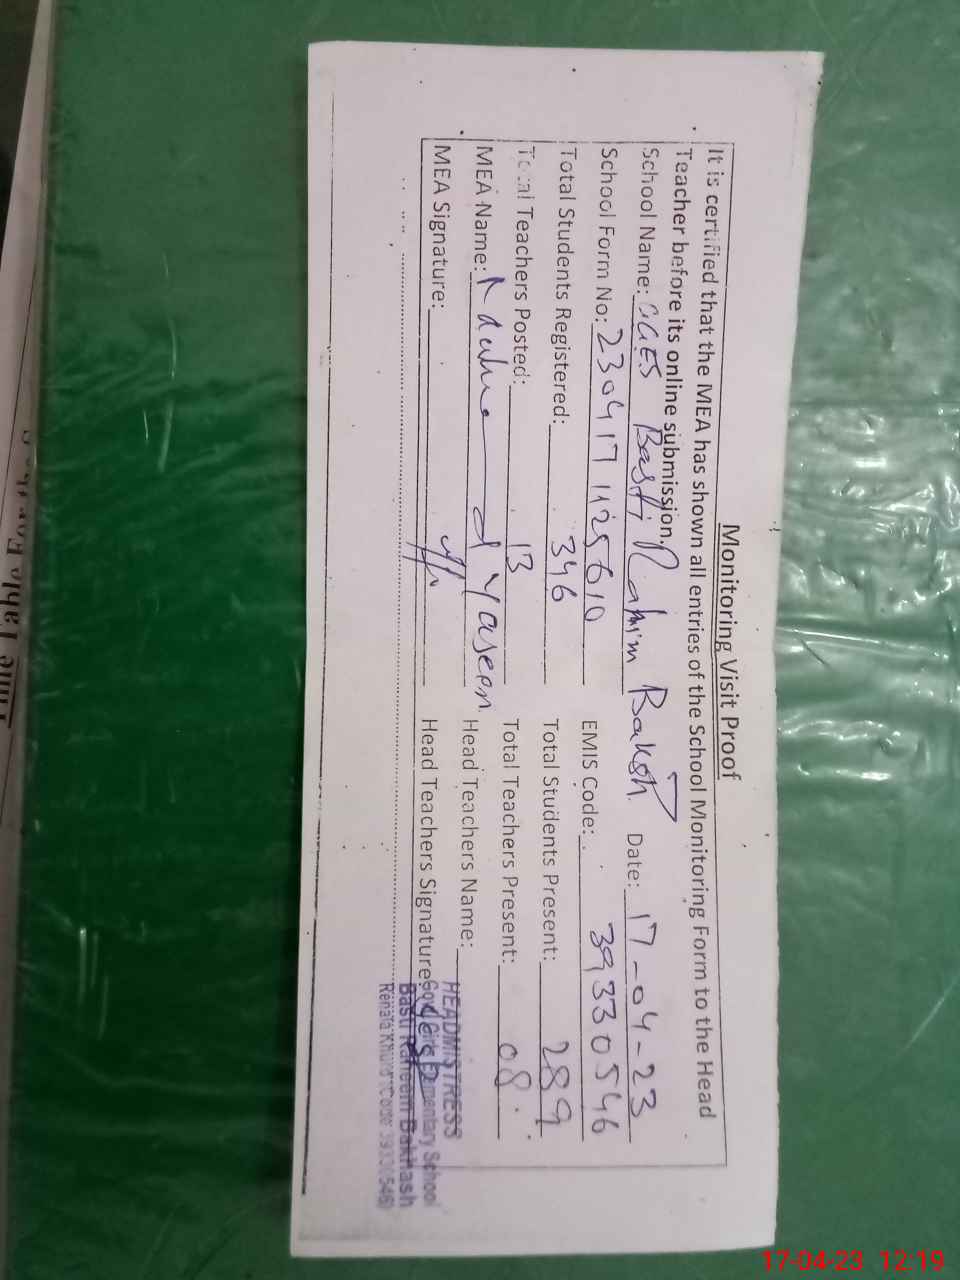 Monitoring Visit Proof
It is certified that the MEA has shown all entries of the School Monitoring Form to the Head
Teacher before its online submission.
School Name: GGES Basti Rahim Baksh Date: 17-04-23
School Form No: 2304171125610 EMIS Code: 39330546
Total Students Registered: 346 Total Students Present: 289
Total Teachers Posted: 13 Total Teachers Present: 08
MEA Name: Yaseen Head Teachers Name:
MEA Signature: Head Teachers Signature
HEADMISTRESS
Govt Girls Elementary School
Basti Raheem Bakhash
Renala Khurd (Code 39330546)
Time Table For
17-04-23 12:19